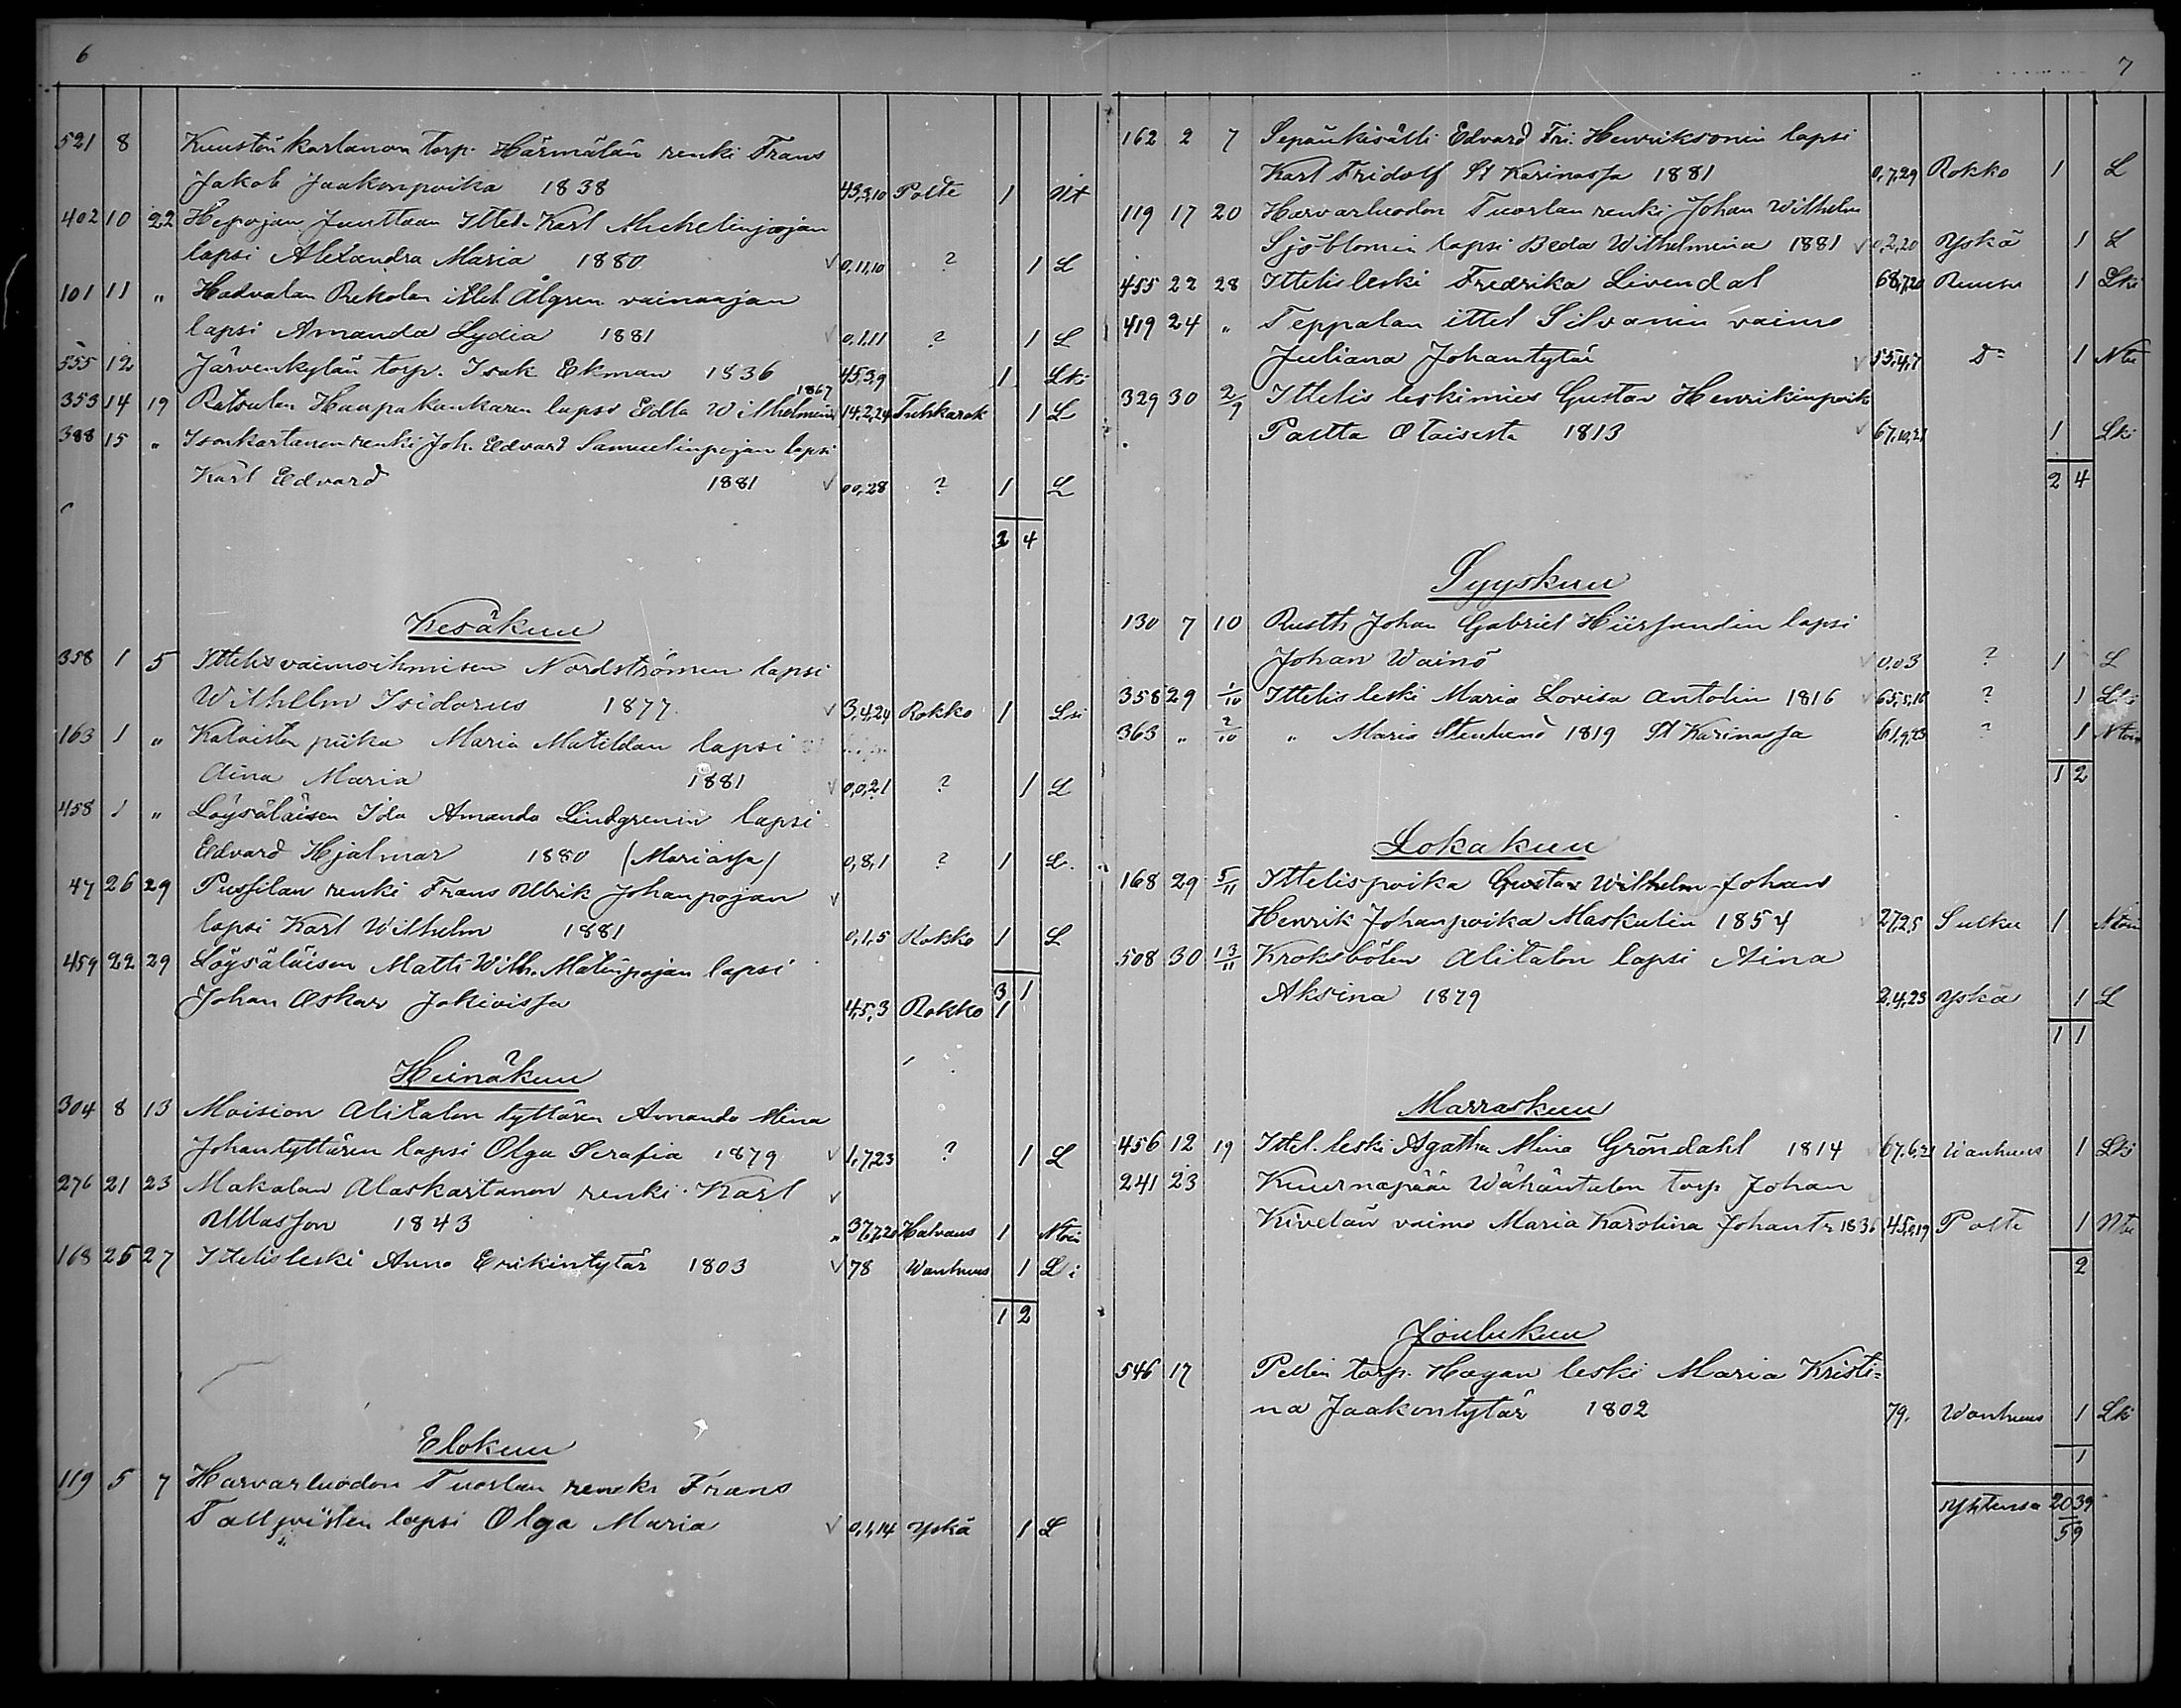 6
521 8 Kuustön kartanon torp. Härmälän renki Frans
Jakob Jaakonpoika 1838 43,3,10 Polte 1 Nt
402 10 22 Hepojan Junttaan Ittel. Karl Michelinpojan
lapsi Alexandra Maria 1880 0,11,10 ? 1 L
101 11 " Hadvalan Rekolan ittel Ålgren vainaajan
lapsi Amanda Lydia 1881 0,1,11 ? 1 L
555 12 Järvenkylän torp. Isak Ekman 1836 45,3,9 1 Lki
353 14 19 Ratsulan Haapakankaren lapsi Edla Wilhelmina 1867 14,2,24 Tuhkarok 1 L
388 15 " Isonkartanon renki Joh. Edvard Samuelinpojan lapsi
Karl Edvard 1881 0,0,28 ? 1 L
3 4
Kesäkuu
358 1 5 Ittelisvaimoihmisen Nordströmin lapsi
Wilhelm Isidorus 1877 3,4,24 Rokko 1 Lsi
163 1 " Kalaisten piika Maria Matildan lapsi
Aina Maria 1881 0,0,21 ? 1 L
458 1 " Löysäläisen Ida Amanda Lindgrenin lapsi
Edvard Hjalmar 1880 (Mariassa) 0,8,1 ? 1 L.
47 26 29 Pussilan renki Frans Ulrik Johanpojan
lapsi Karl Wilhelm 1881 0,1,5 Rokko 1 L
459 22 29 Löysäläisen Matti Wilh. Matinpojan lapsi 3 1
Johan Oskar Jokioissa 4,5,3 Rokko 1
Heinäkuu
304 8 13 Moision Alitalon tyttären Amanda Mina
Johantyttären lapsi Olga Serafia 1879 1,7,23 ? 1 L
276 21 23 Makalan Alaskartanon renki Karl
Ullasson 1843 37,7,20 Halvaus 1 Ntoin
168 25 27 Ittelisleski Anna Erikintytär 1803 78 Wanhuus 1 Lki
1 2
Elokuu
119 5 7 Harvarluodon Tuorlan renki Frans
Tallqvisten lapsi Olga Maria 0,1,14 Yskä 1 L
7
162 2 7 Sepänkisälli Edvard Fri. Henriksonin lapsi
Karl Fridolf St Karinassa 1881 0,7,29 Rokko 1 L
119 17 20 Harvarluodon Tuorlan renki Johan Wilhelm
Sjöblomin lapsi Beda Wilhelmina 1881 0,2,20 Yskä 1 L
455 22 28 Ittelisleski Fredrika Livendal 68,7,20 1 Lki
419 24 " Teppalan ittel Silvanin vaimo
Juliana Johantytär 55,4,7 D= 1 Ntu
329 30 2/9 Ittelis leskimies Gustav Henrikinpoik
Paltta Otaisesta 1813 67,10,21 1 Lki
2 4
Syyskuu
130 7 10 Rusth Johan Gabriel Hiirsundin lapsi
Johan Wainö 0,0,3 ? 1 L
358 29 1/10 Ittelis leski Maria Lovisa Antolin 1816 65,5,16 ? 1 Lki
363 " 2/10 " Maria 1819 St Karinassa 61,9,23 ? 1 Ntoin
1 2
Lokakuu
168 29 5/11 Ittelispoika Gustav Wilhelm Johan
Henrik Johanpoika Maskulin 1854 27,2,5 Sulku 1 Ntoin
508 30 13/11 Kroksbölen Alitalon lapsi Aina
Aksina 1879 2,4,23 Yskä 1 L
1 1
Marraskuu
456 12 19 Ittel. leski Agatha Mina Gröndahl 1814 67,6,21 Wanhuus 1 Lki
241 23 Kuurnapään Wähäntalon torp Johan
Kivelän vaimo Maria Karolina Johantr 1836 45,0,19 Polte 1 Ntu
2
Joulukuu
546 17 Pellin torp. Hagan leski Maria Kristi=
na Jaakontytär 1802 79. Wanhuus 1 Lki
1
Yhtensä 20 39
59